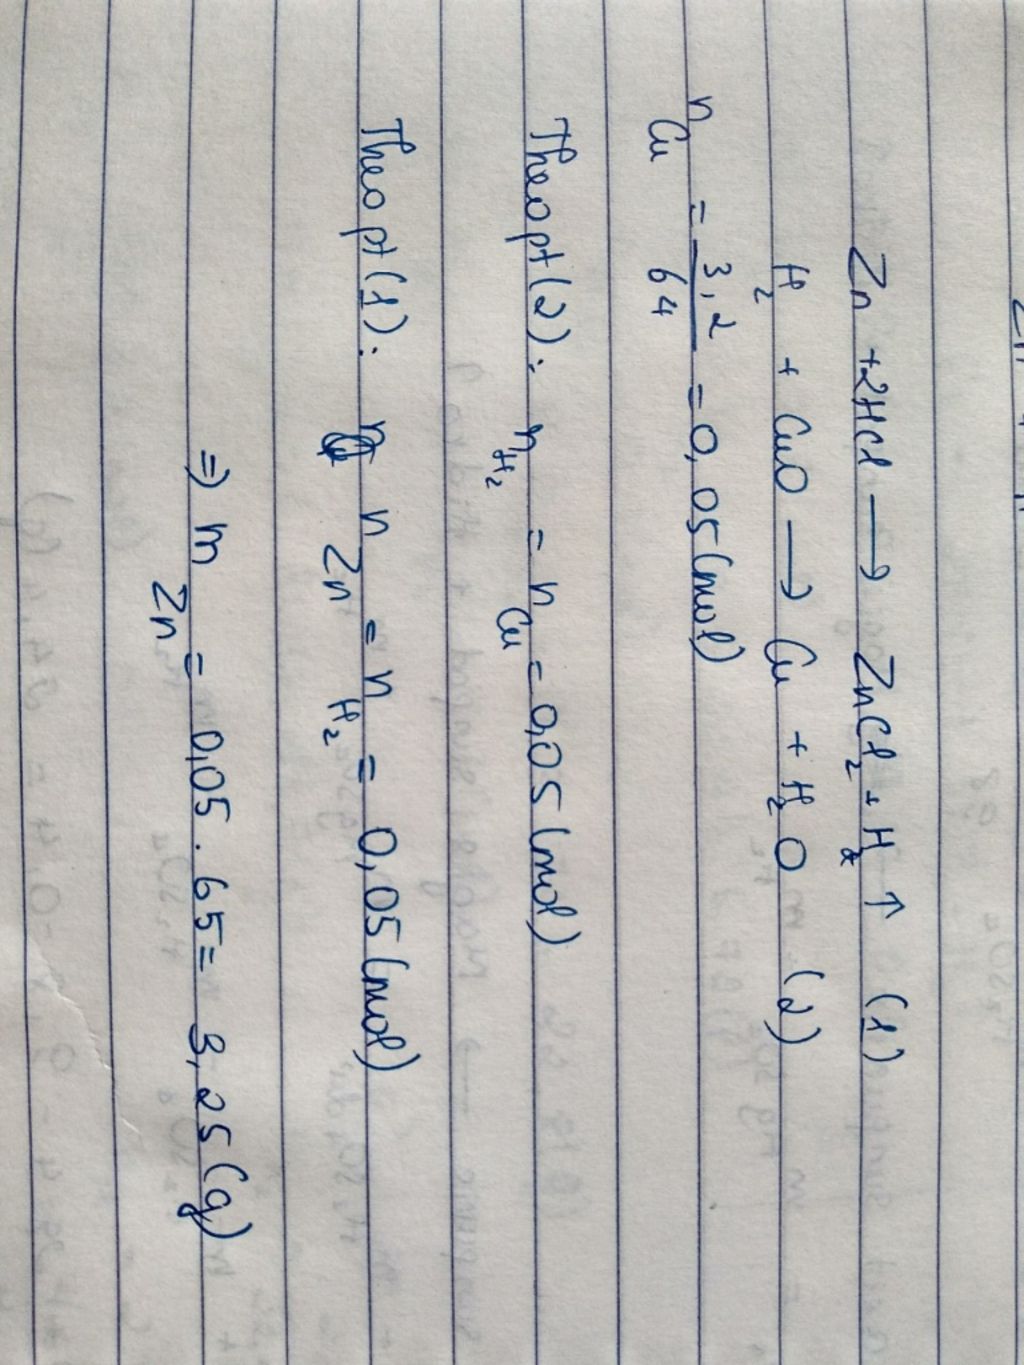 Zn + 2HCl ⟶ ZnCl₂ + H₂ ↑ (1)
H₂ + CuO ⟶ Cu + H₂O (2)
n_Cu = 3,2/64 = 0,05 (mol)
Theo pt (2): n_H₂ = n_Cu = 0,05 (mol)
Theo pt (1): n_Zn = n_H₂ = 0,05 (mol)
⇒ m_Zn = 0,05 . 65 = 3,25 (g)